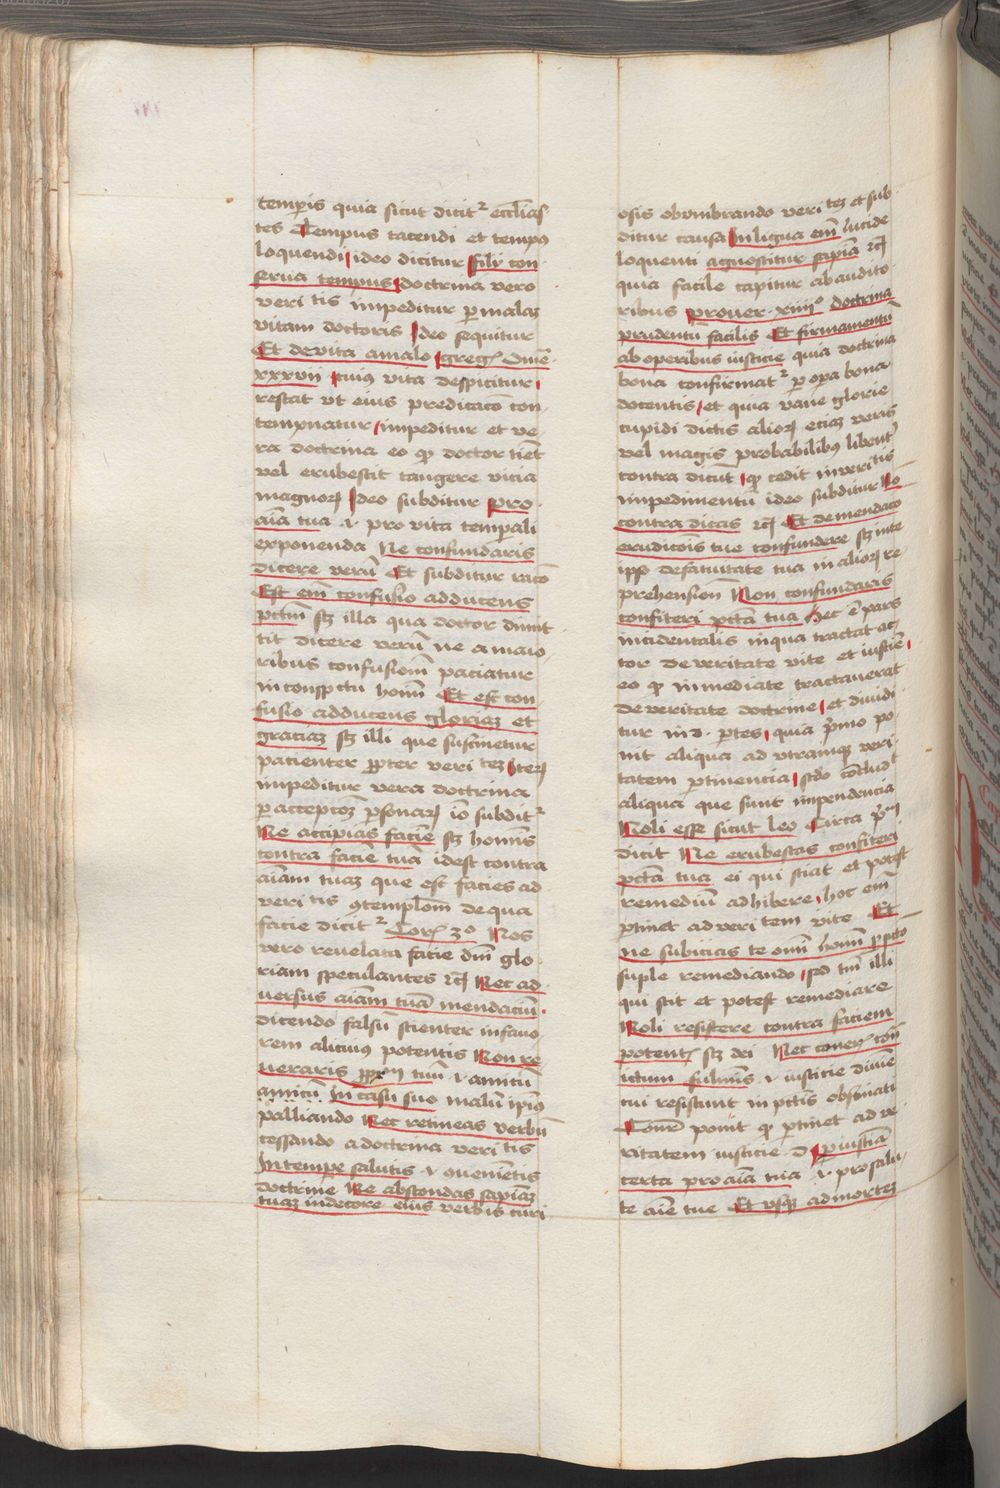 temporis quia sicut dicit̄ ecclīas
tes Tempus tacendi et tempꝰ
loquendi ideo dicitur fili con
serua tempus doctrina vero
veri tis impeditur ꝑ malaꝫ
vitam doctoris Ideo sequitur
Et de vita a malo greḡ Ome̅
xxxvii cuiꝰ vita despicitur
restat vt eius predicac̄o con
tempnatur impeditur et ve
ra doctrina eo qꝫ doctor timet
vel erubescit tangere vicia
magnoꝝ Ideo subditur pro
aīa tua .i. pro vita tempꝰali
exponenda Ne confundaris
dicere verū Et subditur racō
Est em̄ confusio adducens
pctm̄ sꝫ illa qua doctor dimit
tit dicere verū ne a maio
ribus confusionē paciatur
in conspectu homī Et est con
fusio adducens gloriaꝫ et
graciaꝫ sꝫ illi que sustinetur
pacienter ꝓpter veri teꝫ Iteꝝ
impeditur vera doctrina
ꝑ accepcōeꝫ ꝑsonaꝝ iō subdit̄
Ne accipias faciē sꝫ hominis
contra faciē tuā idest contra
aīam tuaꝫ que est facies ad
veri tis ꝯtemplōem de qua
facie dicit̄ Corꝝ 3º Nos
vero reuelata facie dm̄ glo
riam speculantes rcꝫ Nec ad
versus aīam tuā mendaciū
dicendo falsū scienter in fauo
rem alicuiꝰ potentis Non re
uerearis ꝓxm̄ tuū .i. amicū
amicū In casu suo malū ipīus
palliando Nec retineas verbū
cessando a doctrina veri tis
In tempe salutis .i. ꝯuenientis
doctrine Ne abscondas sapiaꝫ
tuaꝫ in decore eius verbis curi
osis obumbrando veri teꝫ et sub
ditur causa In ligua em̄ lucide
loquenti agnoscitur sapīa rcꝫ
quia facile capitur ab audito
ribus prouer. xiiiiº doctrina
prudentū facilis Et firmamentū
ab operibus iusticie quia doctrina
bona confirmat̄ ꝑ opa bona
docentis et quia vane glorie
cupidi dictis alioꝝ eciaꝫ veris
vel magis probabilibꝰ libent̄
contra dicūt qꝫ cedit in veri tis
impedimentū ideo subditur No
contra dicas rcꝫ Et de mendacio
erudicōis tue confundere sꝫ in te
ipso de fatuitate tua in alioꝝ re
prehensionē Non confundaris
confiteri pctā tua Hec ē pars
incidentalis in qua tractat ac
tor de veritate vite et iusticiē
eo qꝫ inmediate tractauerat
de veritate doctrine et diuidi
tur in 2 ꝑtes quia pͥmo po
nit aliqua ad vtramqꝫ veri
tatem ꝑtinencia scdo concludit
aliqua que sunt impendencia
Noli esse sicut leo Circa pͥm
dicit Ne erubescas confiteri
pctā tua ei qui sciat et potest
remediū adhibere hoc em̄
ꝑtinet ad veri tem vite Et
ne subicias te omi hom̄i ꝑ pcto
suple remediando sed tm̄ illi
qui scit et potest remediare
Noli resistere contra faciem
potentꝭ sꝫ dei Nec coneris con̄
ictum fulminis .i. iusticie diuine
cui resistunt in pctis obstinati
ponit qꝫ ꝑtinet ad ve
ritatem iusticie d. ꝓ iusticia
certa pro aīa tua .i. pro salu
te aīe tue Et vsqꝫ ad morteꝫ